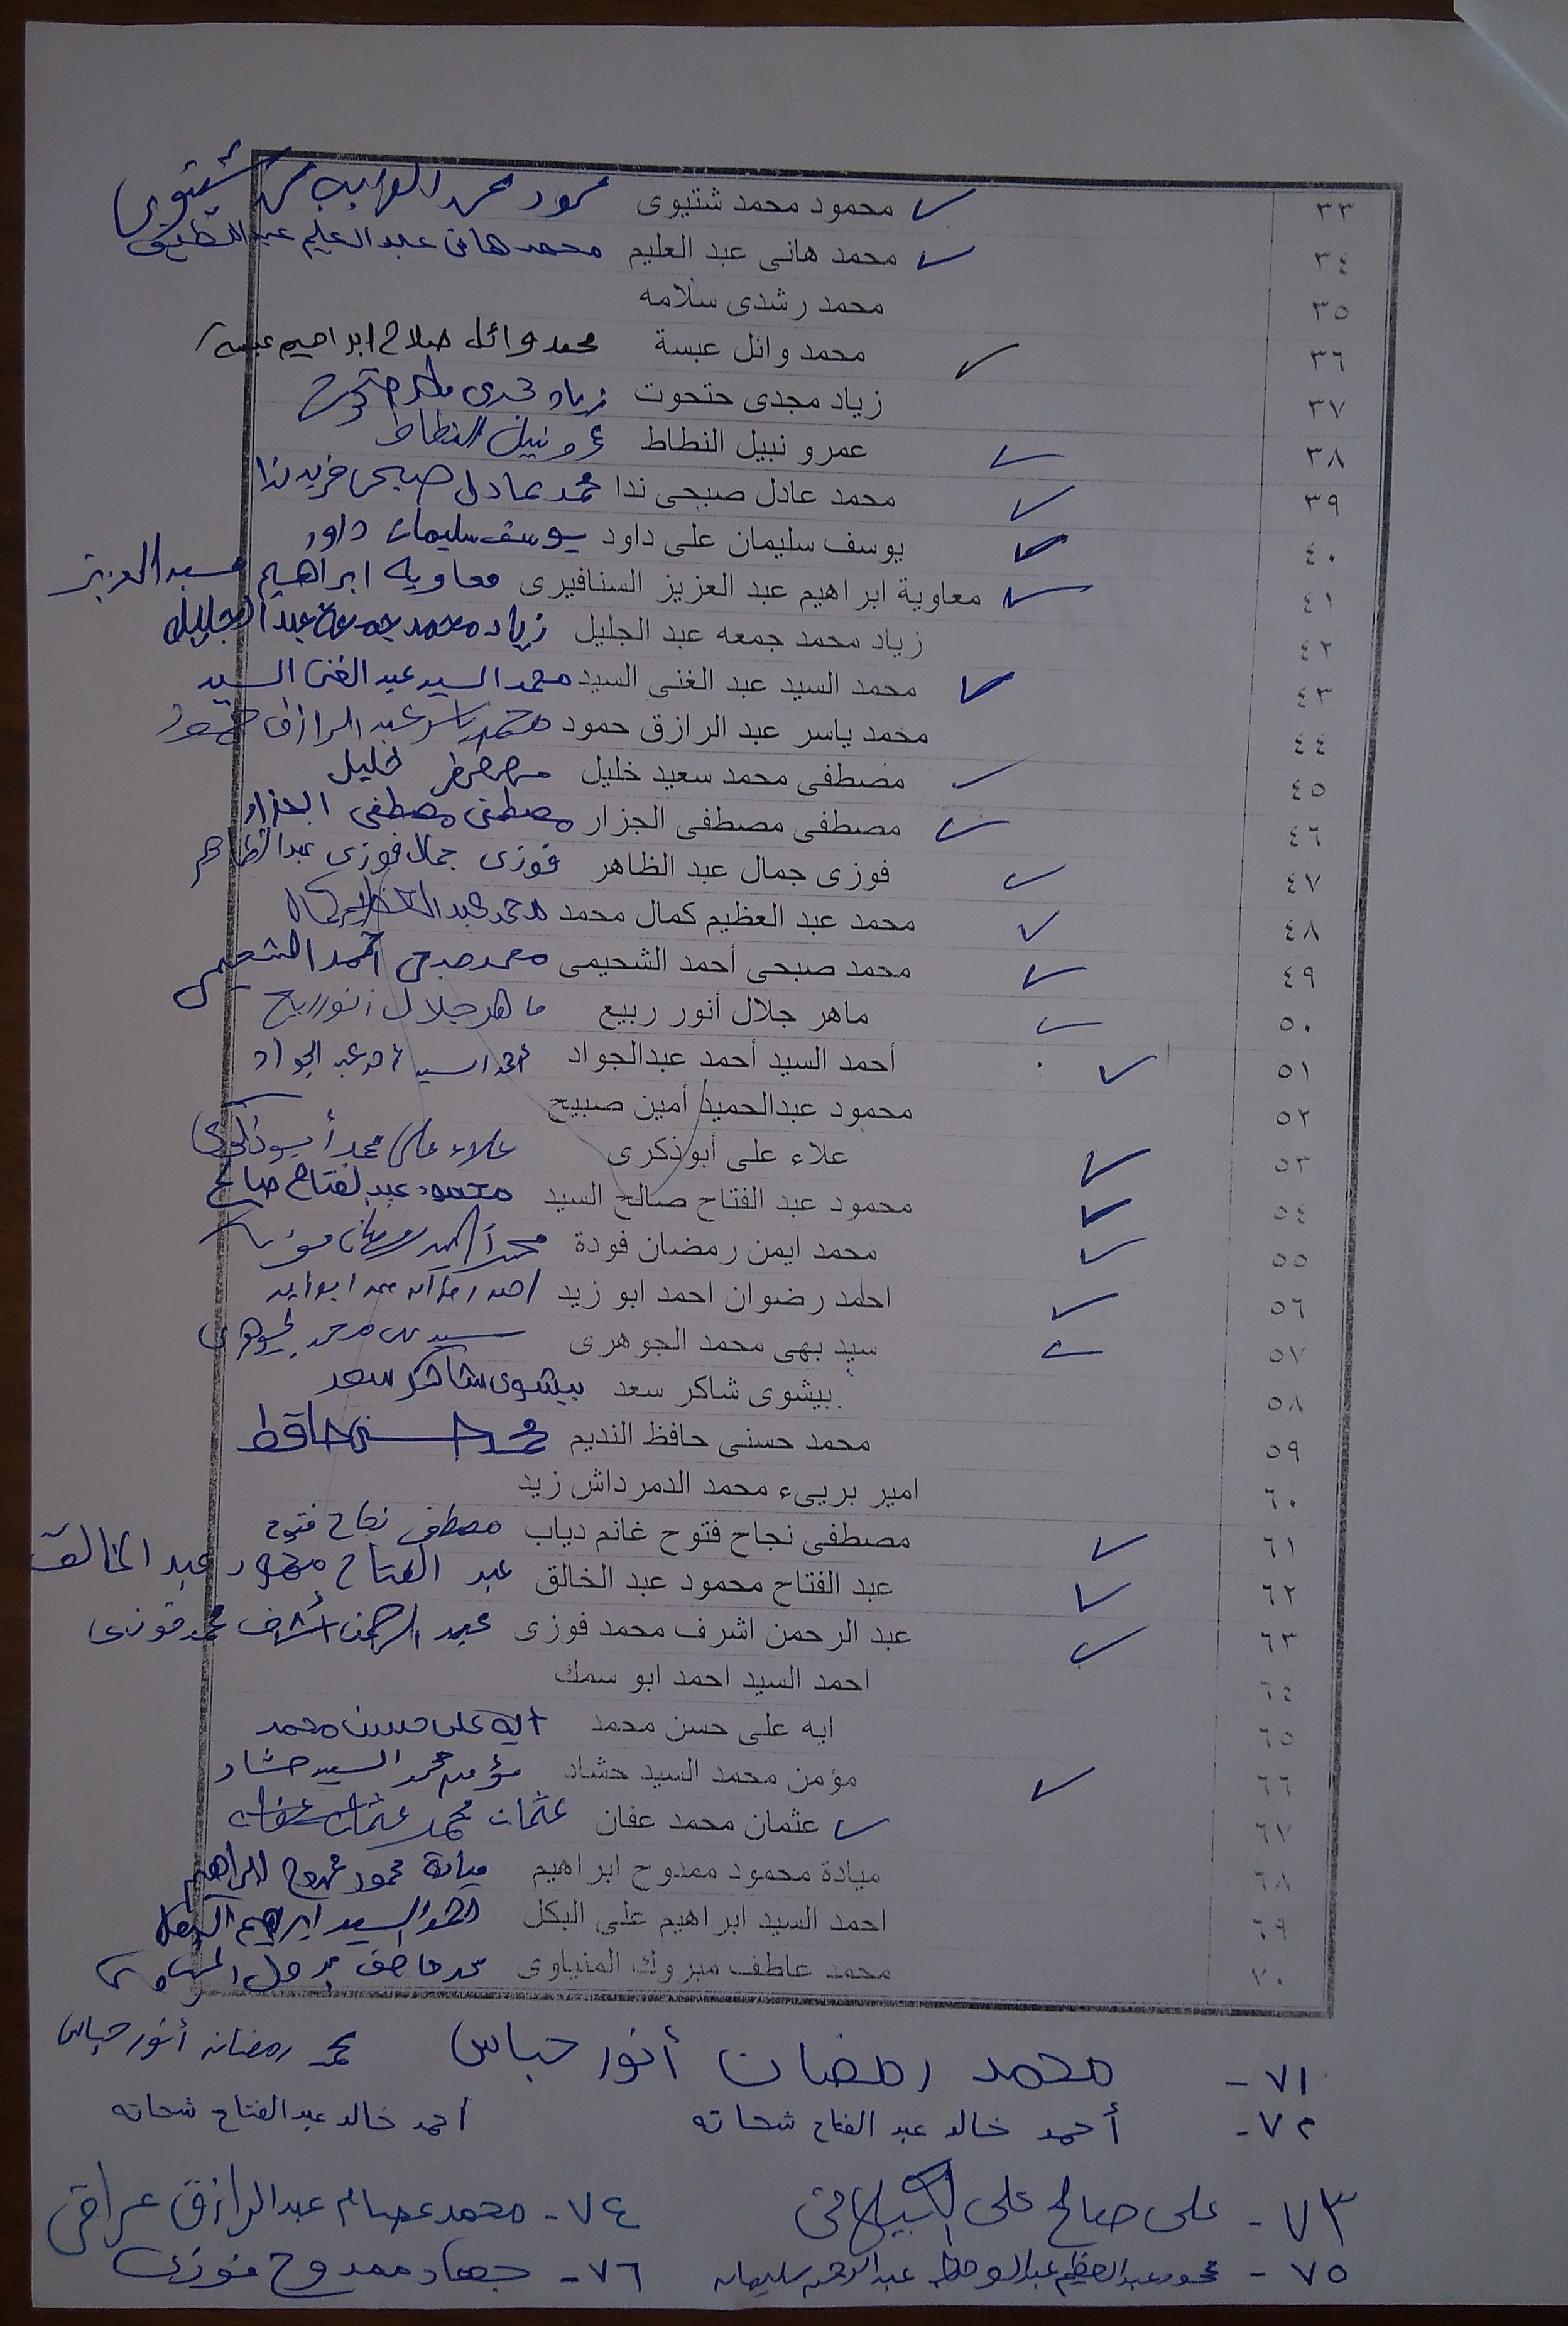 ٣٣ محمود محمد شتيوى ✓ شتيوى
٣٤ محمد هانى عبد العليم ✓ محمد هانى عبد العليم عبد اللطيف
٣٥ محمد رشدى سلامه
٣٦ محمد وائل عبسة ✓ محمد وائل صلاح ابراهيم عبسه
٣٧ زياد مجدى حتحوت زياد مجدى حتحوت
٣٨ عمرو نبيل النطاط ✓ عمرو نبيل النطاط
٣٩ محمد عادل صبحى ندا ✓ محمد عادل صبحى فريد ندا
٤٠ يوسف سليمان على داود ✓ يوسف سليمان داود
٤١ معاوية ابراهيم عبد العزيز السنافيرى ✓ معاويه ابراهيم عبد العزيز
٤٢ زياد محمد جمعه عبد الجليل زياد محمد جمعة عبد الجليل
٤٣ محمد السيد عبد الغنى السيد ✓ محمد السيد عبد الغنى السيد
٤٤ محمد ياسر عبد الرازق حمود محمد ياسر عبد الرازق حمود
٤٥ مصطفى محمد سعيد خليل ✓ مصطفى خليل
٤٦ مصطفى مصطفى الجزار ✓ مصطفى مصطفى الجزار
٤٧ فوزى جمال عبد الظاهر ✓ فوزى جمال فوزى عبد الظاهر
٤٨ محمد عبد العظيم كمال محمد ✓ محمد عبد العظيم كمال
٤٩ محمد صبحى أحمد الشحيمى ✓ محمد صبحى أحمد الشحيمى
٥٠ ماهر جلال أنور ربيع ✓ ماهر جلال أنور ربيع
٥١ أحمد السيد أحمد عبدالجواد ✓ أحمد السيد أحمد عبد الجواد
٥٢ محمود عبدالحميد أمين صبيح
٥٣ علاء على أبوذكرى ✓ علاء على محمد أبوذكرى
٥٤ محمود عبد الفتاح صالح السيد ✓ محمود عبد الفتاح صالح
٥٥ محمد ايمن رمضان فودة ✓ محمد أيمن رمضان فودة
٥٦ احمد رضوان احمد ابو زيد ✓ احمد رضوان احمد ابوزيد
٥٧ سيد بهى محمد الجوهرى ✓ سيد بهى محمد الجوهرى
٥٨ بيشوى شاكر سعد بيشوى شاكر سعد
٥٩ محمد حسنى حافظ النديم محمد حسنى حافظ
٦٠ امير بريىء محمد الدمرداش زيد
٦١ مصطفى نجاح فتوح غانم دياب ✓ مصطفى نجاح فتوح
٦٢ عبد الفتاح محمود عبد الخالق ✓ عبد الفتاح محمود عبد الخالق
٦٣ عبد الرحمن اشرف محمد فوزى ✓ عبد الرحمن أشرف محمد فوزى
٦٤ احمد السيد احمد ابو سمك
٦٥ ايه على حسن محمد آية على حسن محمد
٦٦ مؤمن محمد السيد حشاد ✓ مؤمن محمد السيد حشاد
٦٧ عثمان محمد عفان ✓ عثمان محمد عثمان عفان
٦٨ ميادة محمود ممدوح ابراهيم ميادة محمود ممدوح ابراهيم
٦٩ احمد السيد ابراهيم على البكل احمد السيد ابراهيم البكل
٧٠ محمد عاطف مبروك المنياوى محمد عاطف مبروك المنياوى
٧١- محمد رمضان أنور حباس محمد رمضان أنور حباس
٧٢- أحمد خالد عبد الفتاح شحاته أحمد خالد عبد الفتاح شحاته
٧٣- على صالح على ٧٤- محمد عصام عبد الرازق عراقى
٧٥- محمود عبد العظيم عبد الرحمن سليمان ٧٦- جهاد ممدوح فوزى